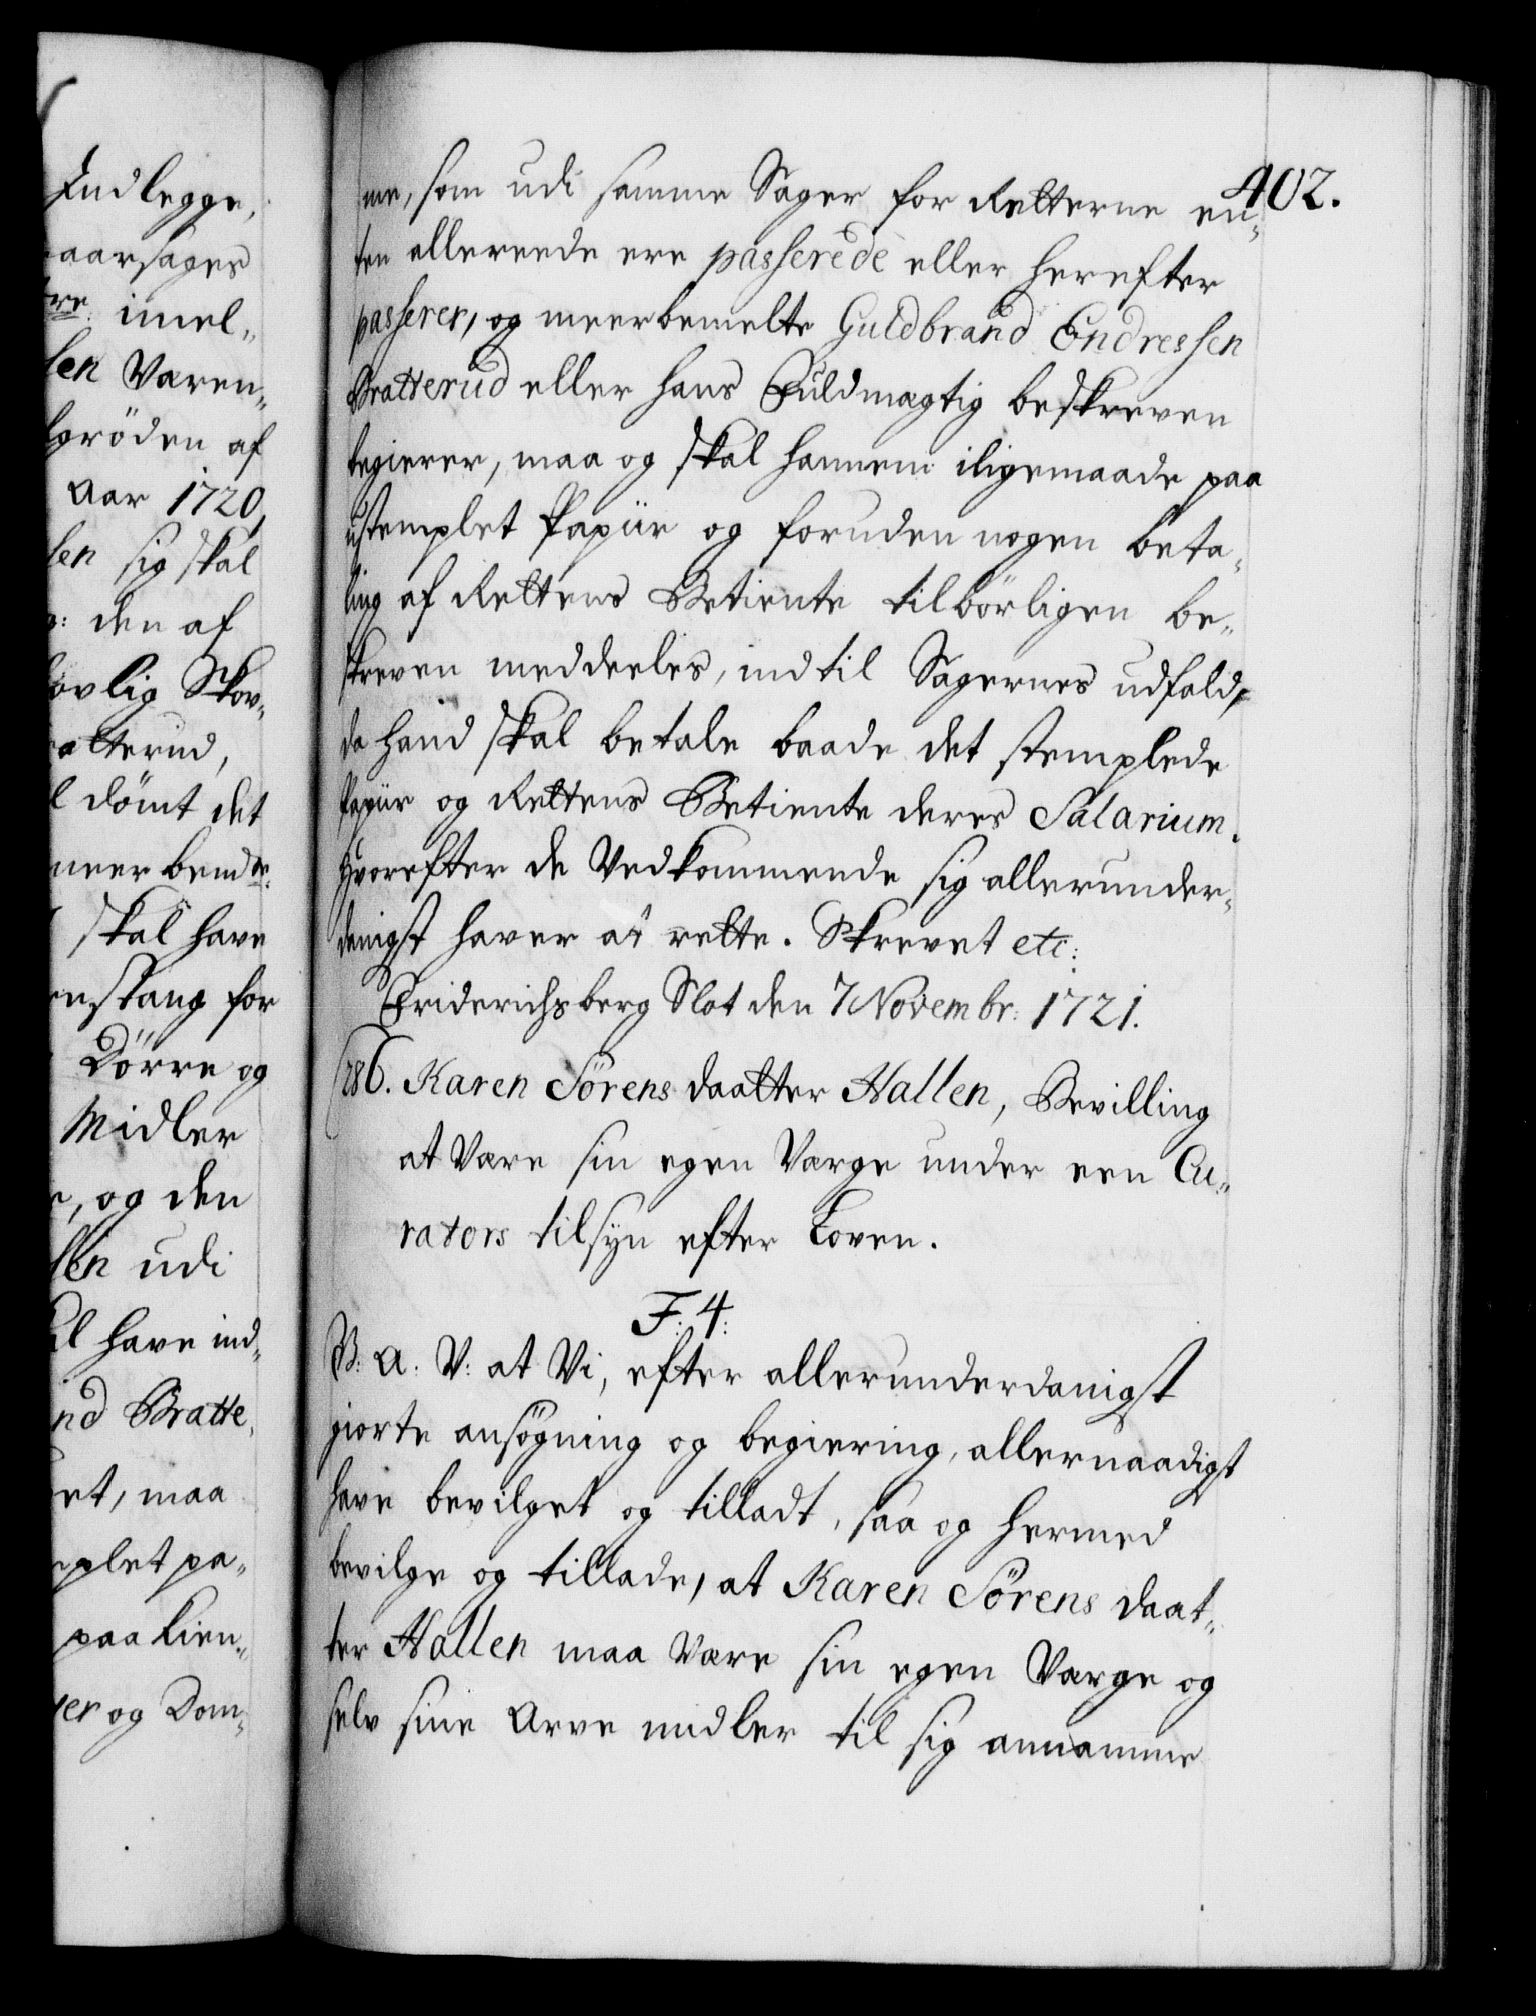 Indlegge,
aarsages
tre imel-
sen Væren-
lgröden af
Aar 1720,
sen sig skal
den af
ovlig Skov-
atterud,
dömt det
meerbemte
skal have
enstang for
Dörre og
Midler
og den
sen udi
have ind-
nd Bratte-
et, maa
mplet pa-
paa Kien-
er og Dom-
402.
me, som udi samme Sager for Retterne en-
ten allereede ere passerede eller herefter
passerer, og meerbemelte Guldbrand Endressen
Bratterud eller hans Fuldmægtig beskreven
begierer, maa og skal hannem iligemaade paa
ustemplet Papiir og foruden nogen beta-
ling af Rettens Betiente tilbörligen be-
skreven meddeeles, indtil Sagernes udfald,
da hand skal betale baade det stemplede
Papiir og Rettens Betiente deres Salarium.
Hvorefter de Vedkommende sig allerunder-
danigst haver at rette. Skrevet etc:
Friderichsberg Slot den 7 Novembr: 1721.
286. Karen Sörens daatter Hallen, Bevilling
at Være sin egen Værge under een Cu-
rators tilsyn efter Loven.
F: 4:
V: A: V: at Vi, efter allerunderdanigst
giorte ansögning og begiering, allernaadigst
have bevilget og tilladt, saa og hermed
bevilge og tillade, at Karen Sörens daat-
ter Hallen maa Være sin egen Værge og
selv sine Arve midler til sig annamme